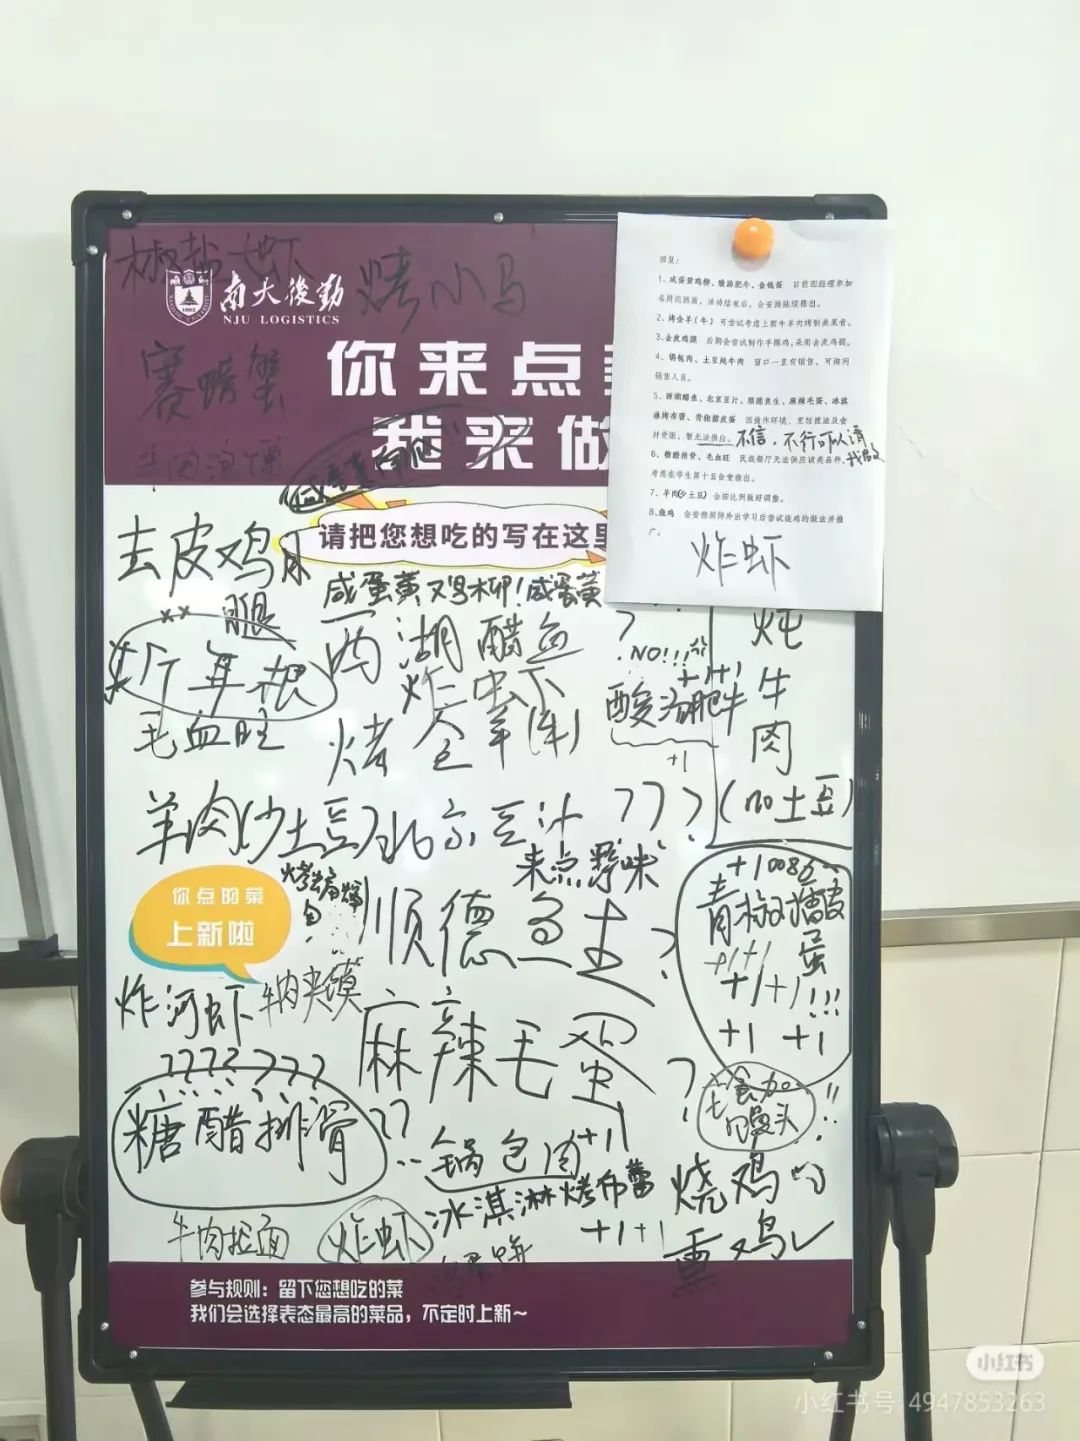 椒盐大虾
烤小马
南大後勤
NJU LOGISTICS
赛螃蟹
你来点
我来做
牛肉泡馍
请把您想吃的写在这里
回复：
1、咸蛋黄鸡柳、酸汤肥牛、金钱蛋 目前因经理参加
名厨巡回展，活动结束后，会安排陆续推出。
2、烤全羊（牛） 可尝试考虑上新牛羊肉烤制类菜肴。
3、去皮鸡腿 后期会尝试制作手撕鸡，采用去皮鸡腿。
4、锅包肉、土豆炖牛肉 窗口一直有销售，可询问
销售人员。
5、西湖醋鱼、北京豆汁、顺德鱼生、麻辣毛蛋、冰淇
淋烤布蕾、青椒擂皮蛋 因操作环境、烹饪技法及食
材受限，暂无法供应。不信，不行可以请
我做
6、糖醋排骨、毛血旺 民族餐厅无法供应该类品种，
考虑在学生第十五食堂推出。
7、羊肉（少土豆） 会按比例做好调整。
8、烧鸡 会安排厨师外出学习后尝试烧鸡的做法并推
广。
炸虾
去皮鸡
腿
咸蛋黄鸡柳！咸蛋黄
西湖醋鱼？
NO!!!
炸虾
毛血旺
烤全羊(牛)
酸汤肥牛
+1+1
+1
炖
牛
肉
(no土豆)
羊肉(少土豆)
北京豆汁？？？
来点野味
你点的菜
上新啦
烤蝙蝠
顺德鱼生？
+10086
青椒擂皮
蛋
+1+1
+1+1!!!
+1 +1
炸河虾
牛肉夹馍
???????
麻辣毛蛋？
糖醋排骨
??
锅包肉+1
馒头
!!
冰淇淋烤布蕾
+1+1
烧鸡
熏鸡✓
牛肉拉面
炸虾
鸡蛋饼
参与规则：留下您想吃的菜
我们会选择表态最高的菜品，不定时上新~
小红书
小红书号 4947853263